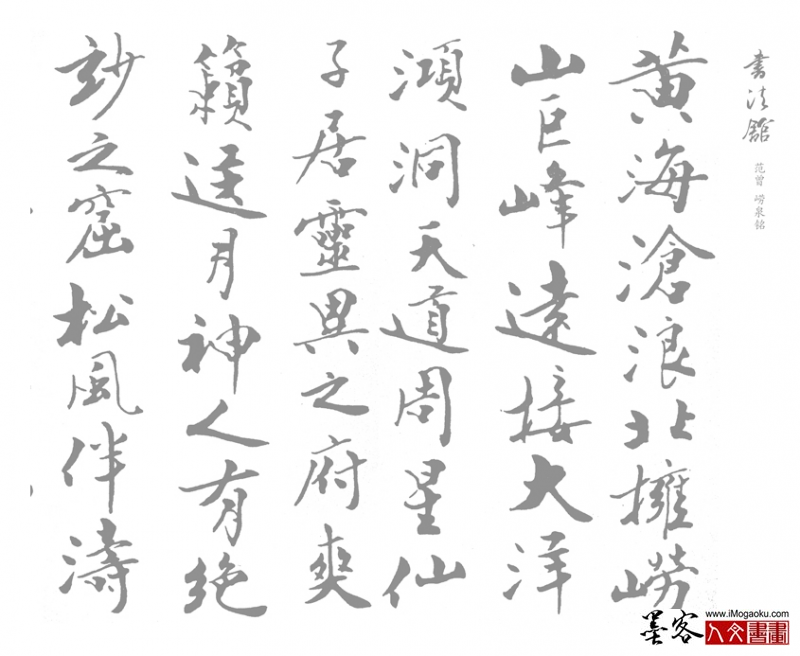 書法館
范曾 嶗泉銘
黃海滄浪北擁嶗
山巨峰遠接大洋
澒洞天道周星仙
子居靈異之府爽
籟送月神人有絶
妙之窟松風伴濤
www.iMogaoku.com
墨客 人文書畫